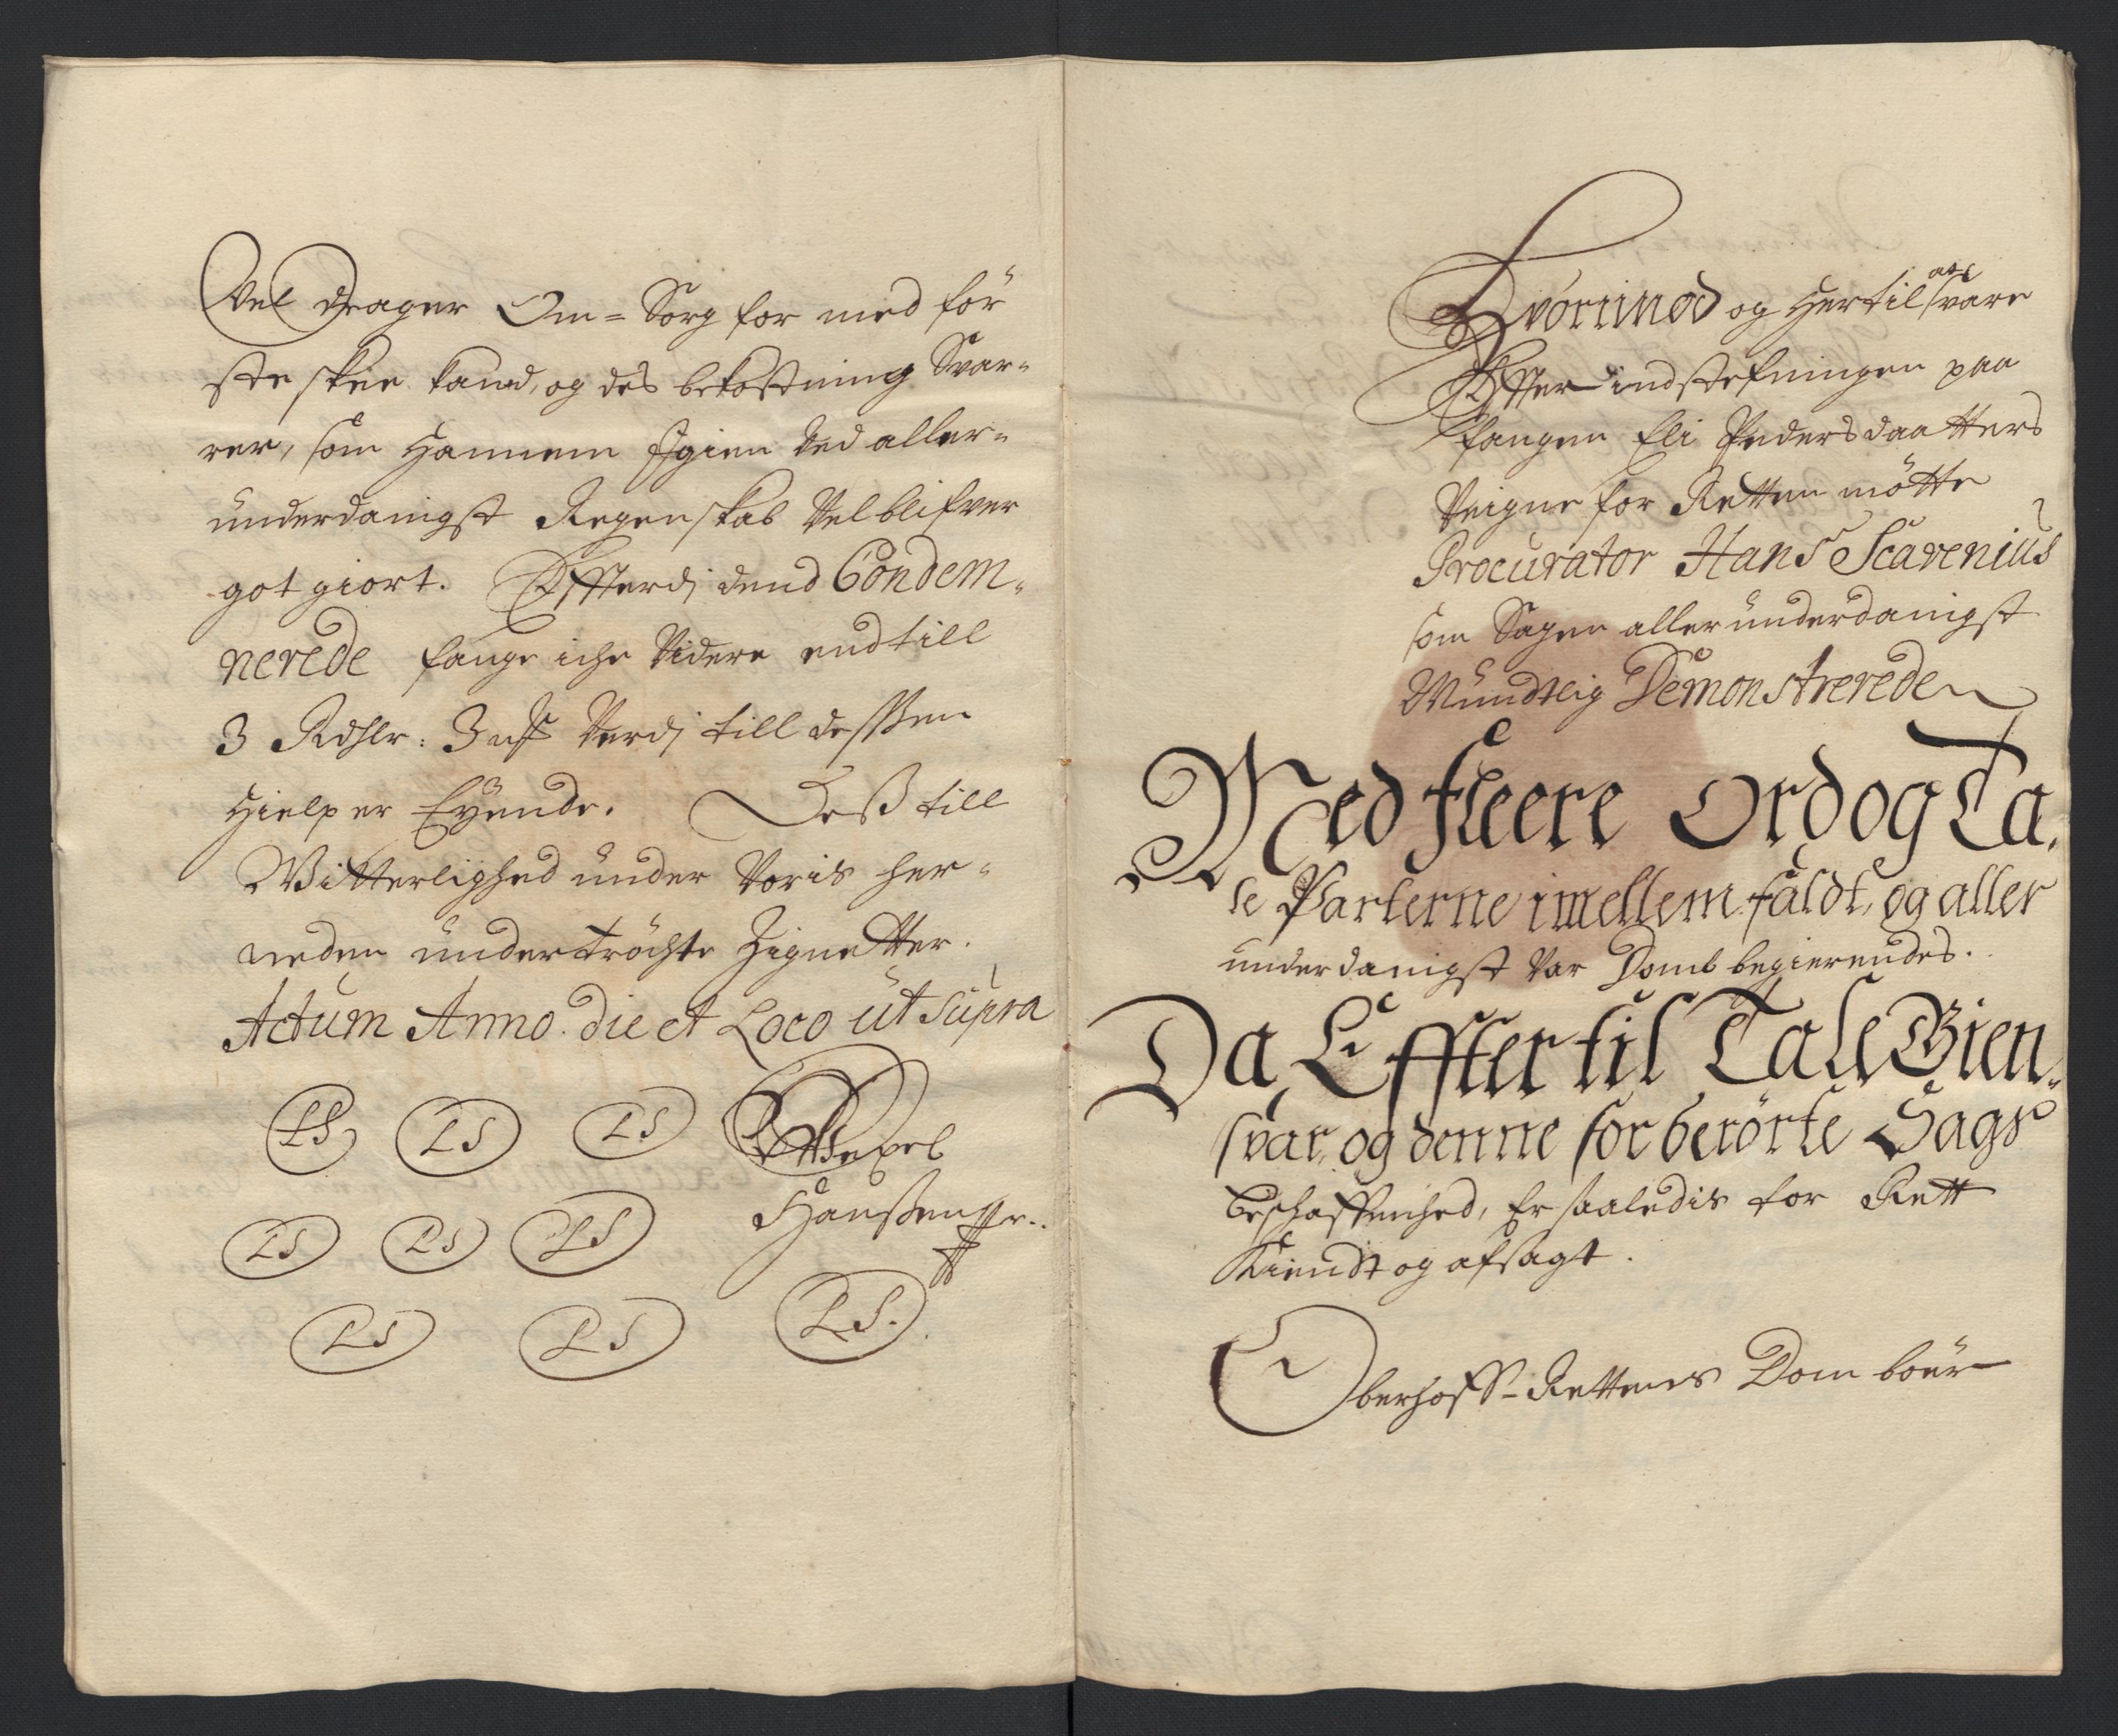 Vel drager Om= Sorg for med för
ste skee kand, og des bekostning Svar=
rer, som Hannem Igien ved aller=
underdanigst Regenskab Vel blifver
got giort. Effterdj dend Condem=
nerede fange iche Videre end till
3 Rdhlr: Verdj till desßen
Hielp er Eyende. Deß till
Witterlighed under Voris her=
neden undertröchte Zignetter.
Actum Anno. die et Loco ut Supra
LS LS LS
Hanßen
LS LS LS
LS LS LS.
Hvorimod og Hertil at svare
Effter indstefningen paa
fangen Eli Pedersdaatters
Veigne for Retten mötte
Procurator Hans Scavenius
som Sagen allerunderdanigst
Mundtlig Demonstrerede
Med fleere Ord og Ta=
le Parterne imellem faldt, og aller
underdanigst Var Domb begierendes.
Da Effter til Tale Gien=
svar, og denne forberörte Sags
beschaffenhed, Er saaledis for Rett
Kiendt og afsagt.
Oberhoff-Rettens Dom böer